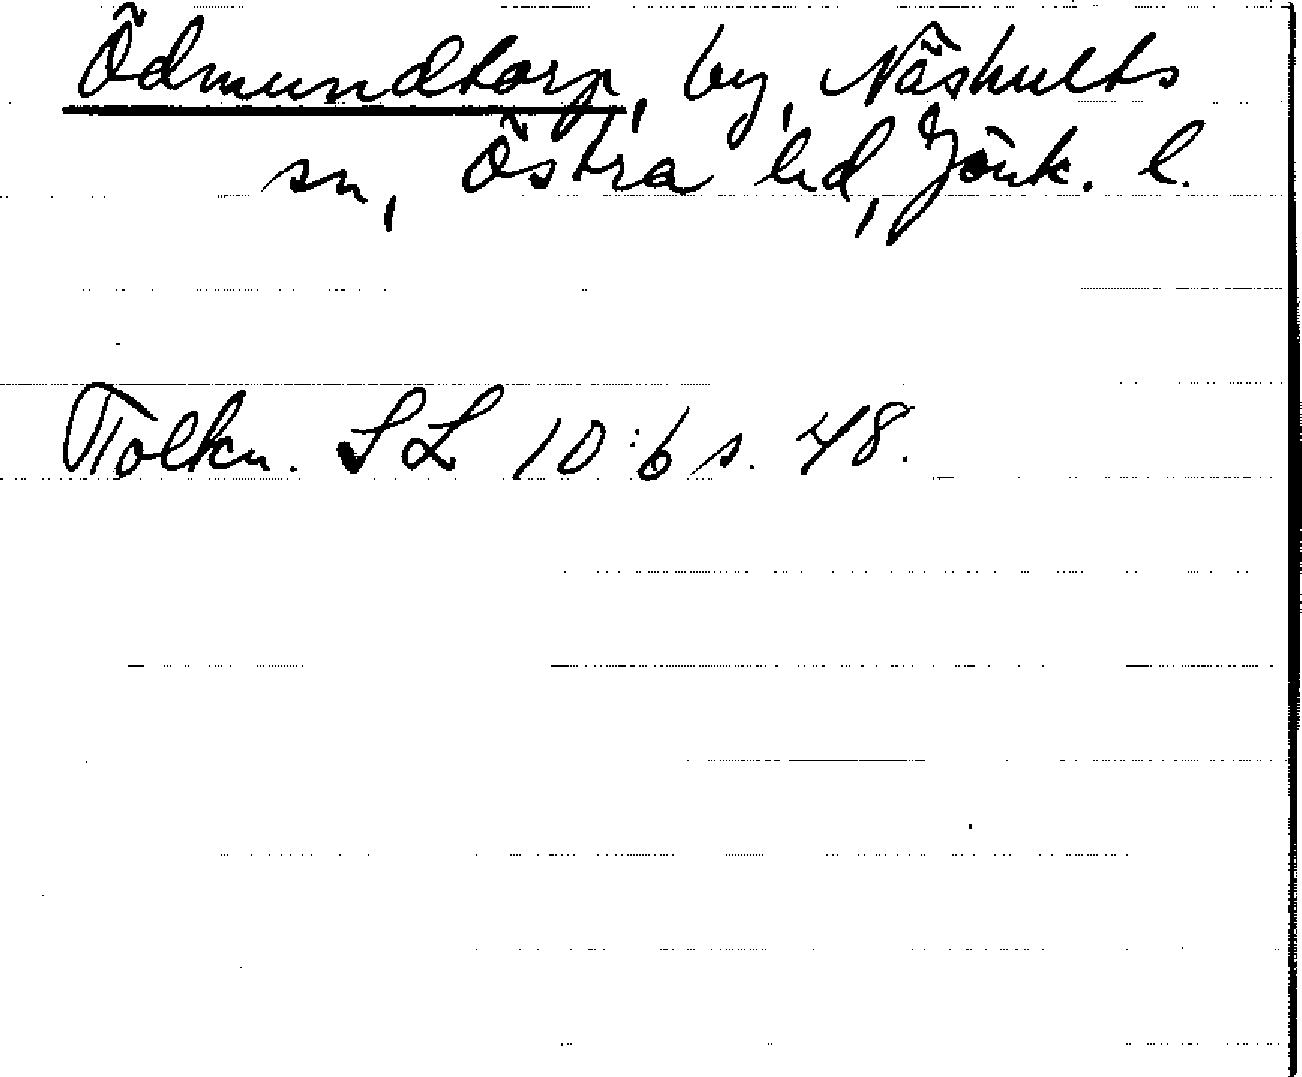 Ödmundtorp, by, Näshults
sn, Östra hd, Jönk. l.
Tolkn. SL 10:6 s. 48.